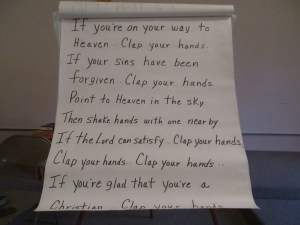 If you're on your way to
Heaven.. Clap your hands.
If your sins have been
forgiven.. Clap your hands
Point to Heaven in the sky
Then shake hands with one near by
If the Lord can satisfy.. Clap your hands
Clap your hands.. Clap your hands..
If you're glad that you're a
Christian.. Clap your hands